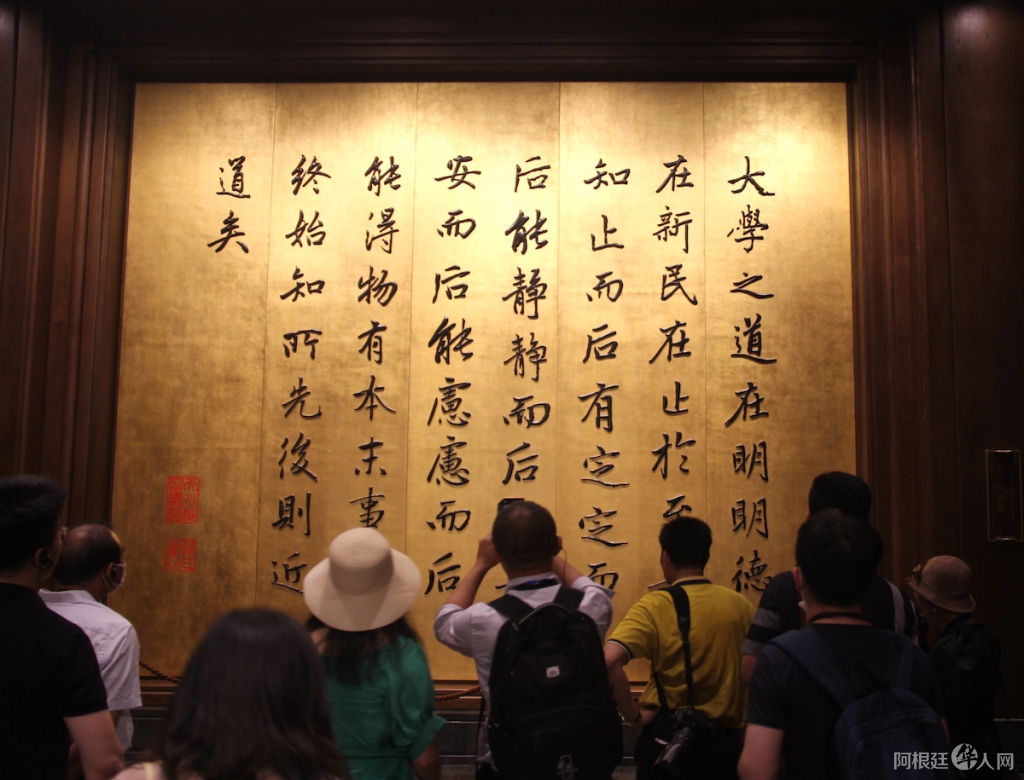 大學之道在明明德
在新民在止於至
知止而后有定定而
后能静静而后
安而后能慮慮而后
能得物有本末事
終始知所先後則近
道矣
阿根廷华人网